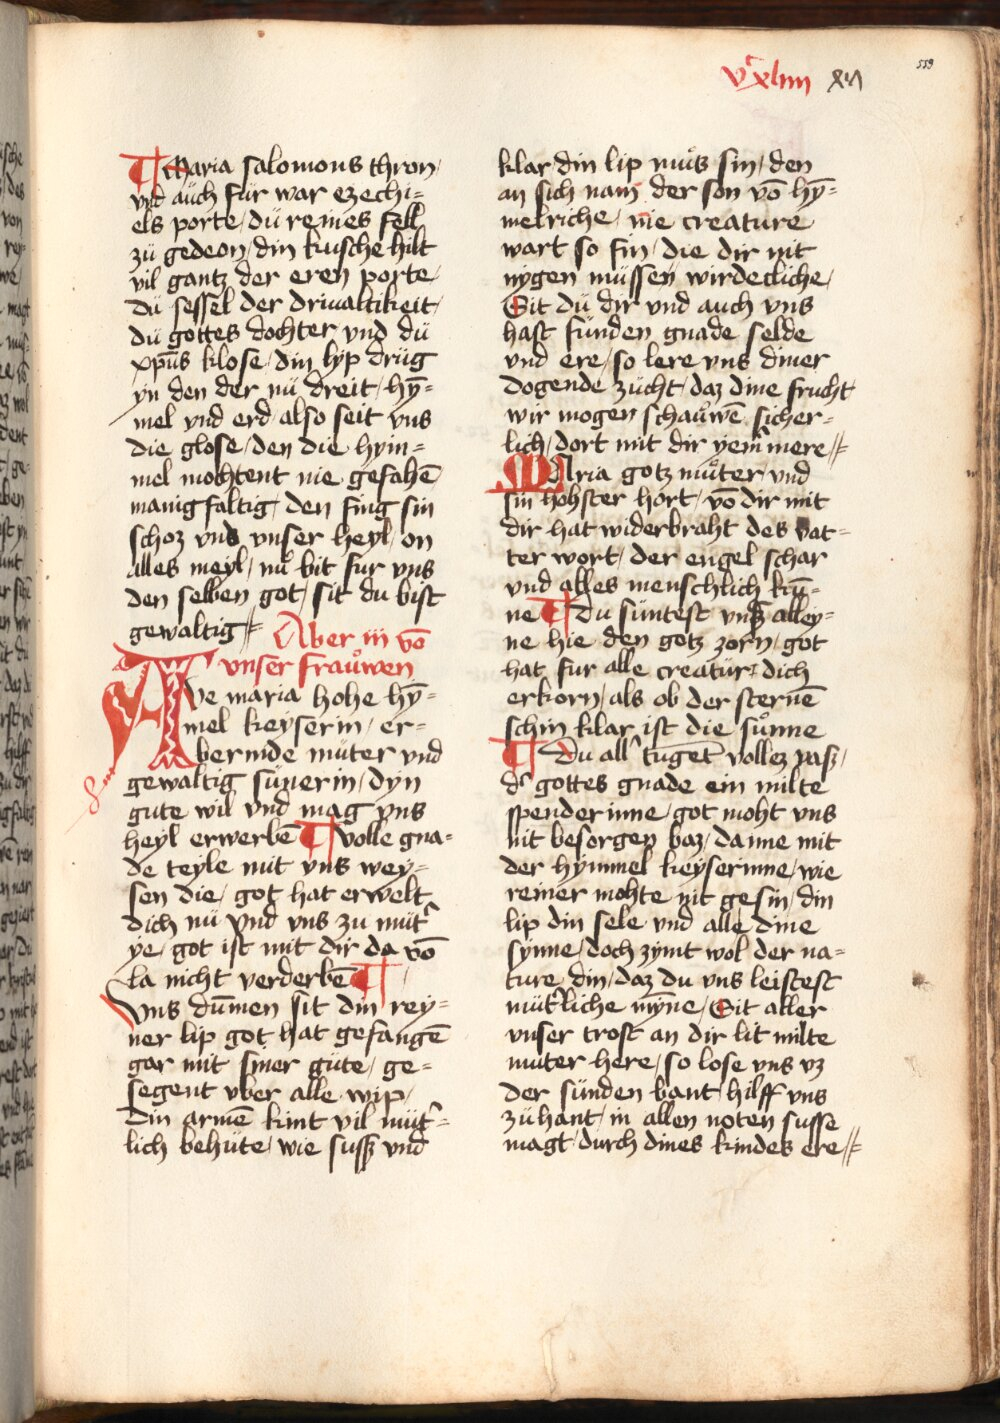 vͨxliiij xvj 559
¶ Maria salomons thron /
vnd aůch fůr war ezechi=
els porte / dů reines fell
zů gedeon / din kusche hilt
vil gantz der eren porte /
Dů sessel der drivaltikeit /
dů gottes dochter vnd dů
xp̄us klose / din lyp drůg
yn den der nů dreit / hȳ=
mel vnd erd / also seit vns
die glose / den die hym=
mel mochtent nie gefahē
manigfaltig / den fing sin
schoz vnd vnser heyl / on
alles meyl / nů bit fur vns
den selben got / sit du bist
gewaltig //
Aber iij vō
vnser fraůwen
AVe maria hohe hȳ=
mel keyserin / er=
bermde můter vnd
gewaltig sůnerin / dyn
gute wil vnd mag vns
heyl erwerbē ¶ volle gna=
de teyle mit vns wey=
sen die / got hat erwelt
dich nů vnd vns zu můt̉
ye / got ist mit dir da vō
la nicht verderbē ¶
Vns dům̄en sit din rey=
ner lip got hat gefangē
gar mit siner gůte / ge=
segent vber alle wip /
din armē kint vil můt̉=
lich behůte / wie sussz vnd
klar din lip můs sin / den
an sich nam der son vō hȳ=
melriche / nie creature
wart so fin / die dir nit
nygen můssen wirdecliche /
Sit dů dir vnd auch vns
hast fůnden gnade selde
vnd ere / so lere vns diner
dogende zůcht / daz dine frucht
wir mogen schaůwē sicher=
lich / dort mit dir yem̉mere //
MAria gotz můter / vnd
sin hohster hort / vō dir mit
dir hat widerbraht des vat=
ter wort / der engel schar
vnd alles menschlich kůn=
ne ¶ du sůntest vnß alley=
ne hie den gotz zorn / got
hat fur alle creatůr / dich
erkorn / als ob der sternē
schin klar ist die sůnne
¶ Du all̉ tůget vollez vasz /
d̉ gottes gnade ein milte
spenderinne / got moht vns
nit besorgen baz / danne mit
der hymmel keyserinne / wie
reiner mohte nit gesin / din
lip din sele vnd alle dine
synne / doch zymt wol der na=
ture din / daz du vns leistest
můt̉liche mȳne / Sit aller
vnser trost an dir lit milte
můter here / so lose vns vz
der sůnden bant hilff vns
zůhant / in allen noten susse
magt / durch dines kindes ere //